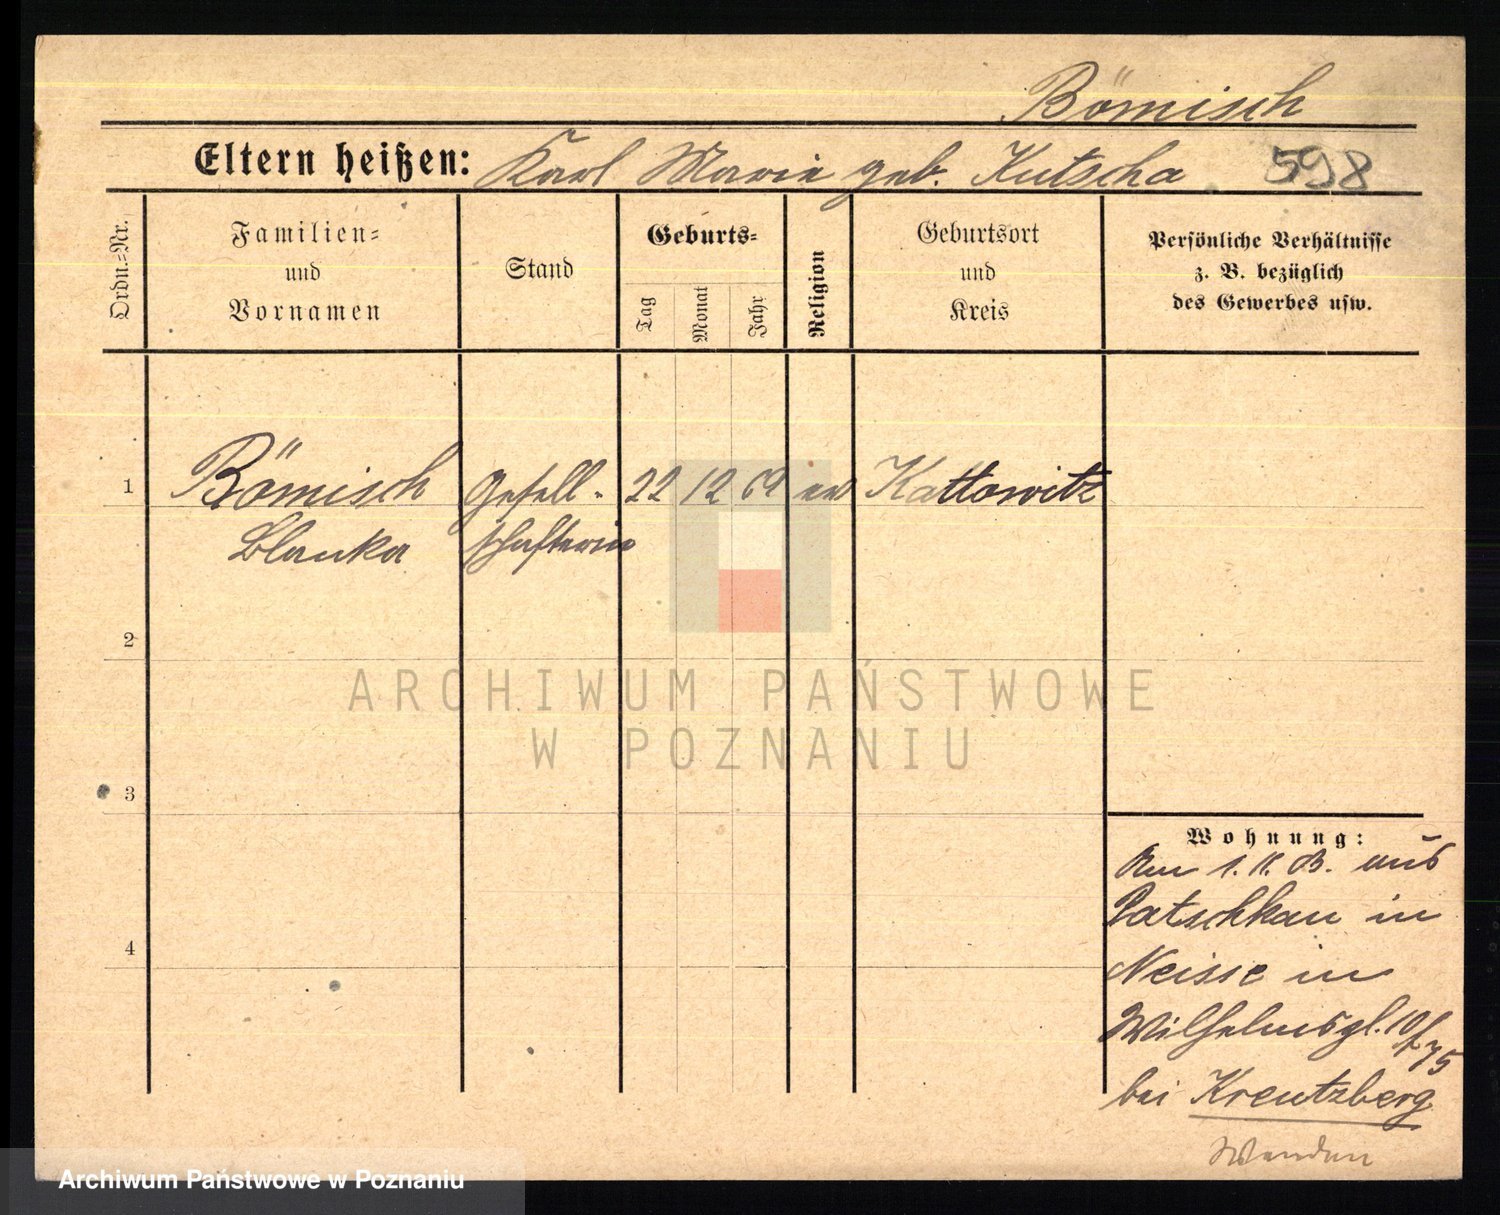 Bömisch
Eltern heißen: Karl Marie geb. Kutscha 598
Ordn.-Nr.
Familien-
und
Vornamen
Stand
Geburts-
Tag
Monat
Jahr
Religion
Geburtsort
und
Kreis
Persönliche Verhältnisse
z. B. bezüglich
des Gewerbes usw.
1 Bömisch Gesell- 22 12 69 Kattowitz
Blanka schafterin
2
3
4
ARCHIWUM PAŃSTWOWE
W POZNANIU
Wohnung:
Am 1. aus
Patschkau in
Neisse in
Wilhelmspl. 10/
75
bei Kreutzberg
Wenden
Archiwum Państwowe w Poznaniu